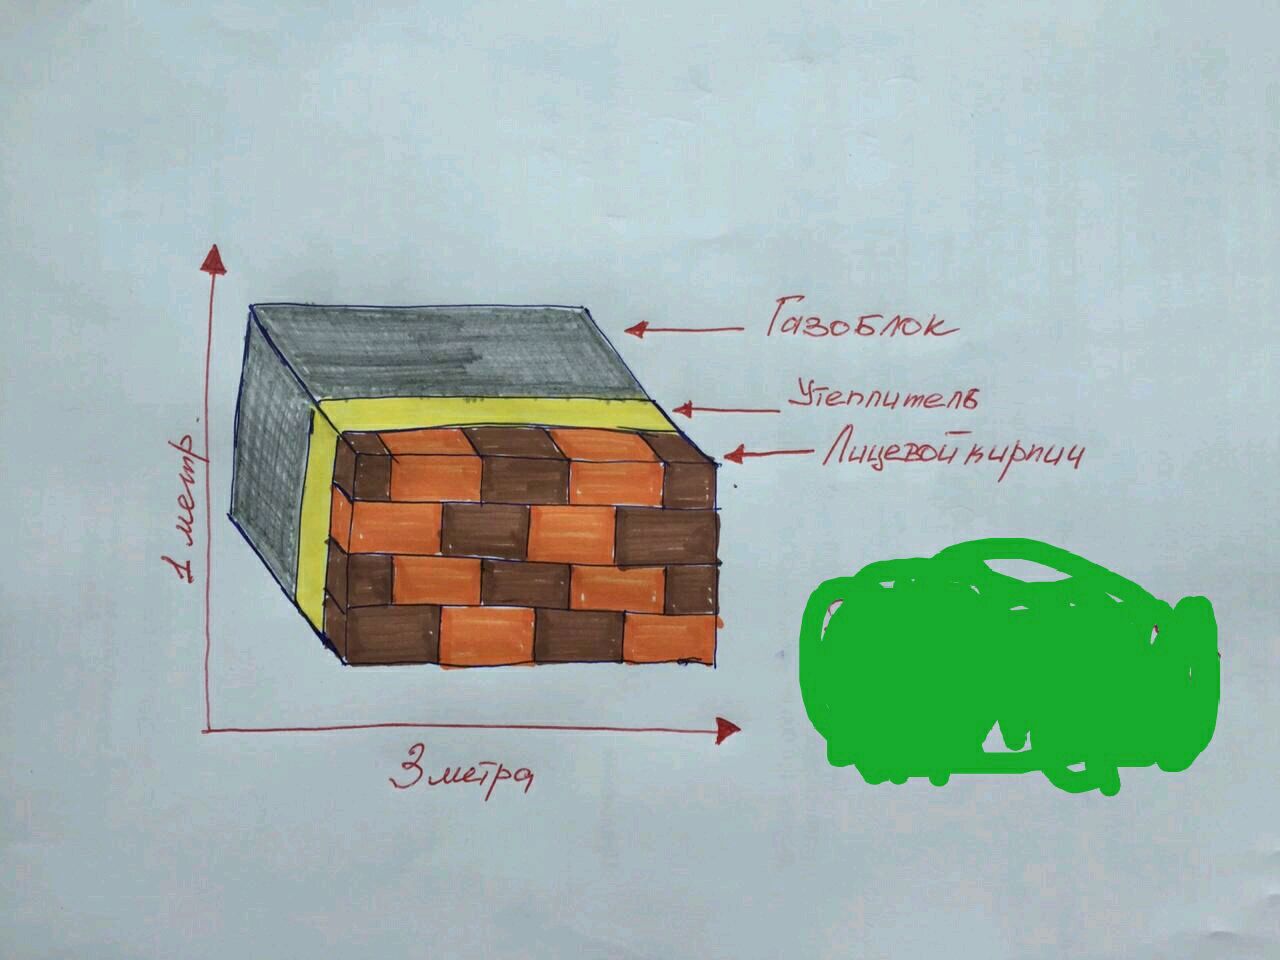 Газоблок
Утеплитель
Лицевой кирпич
1 метр.
3 метра